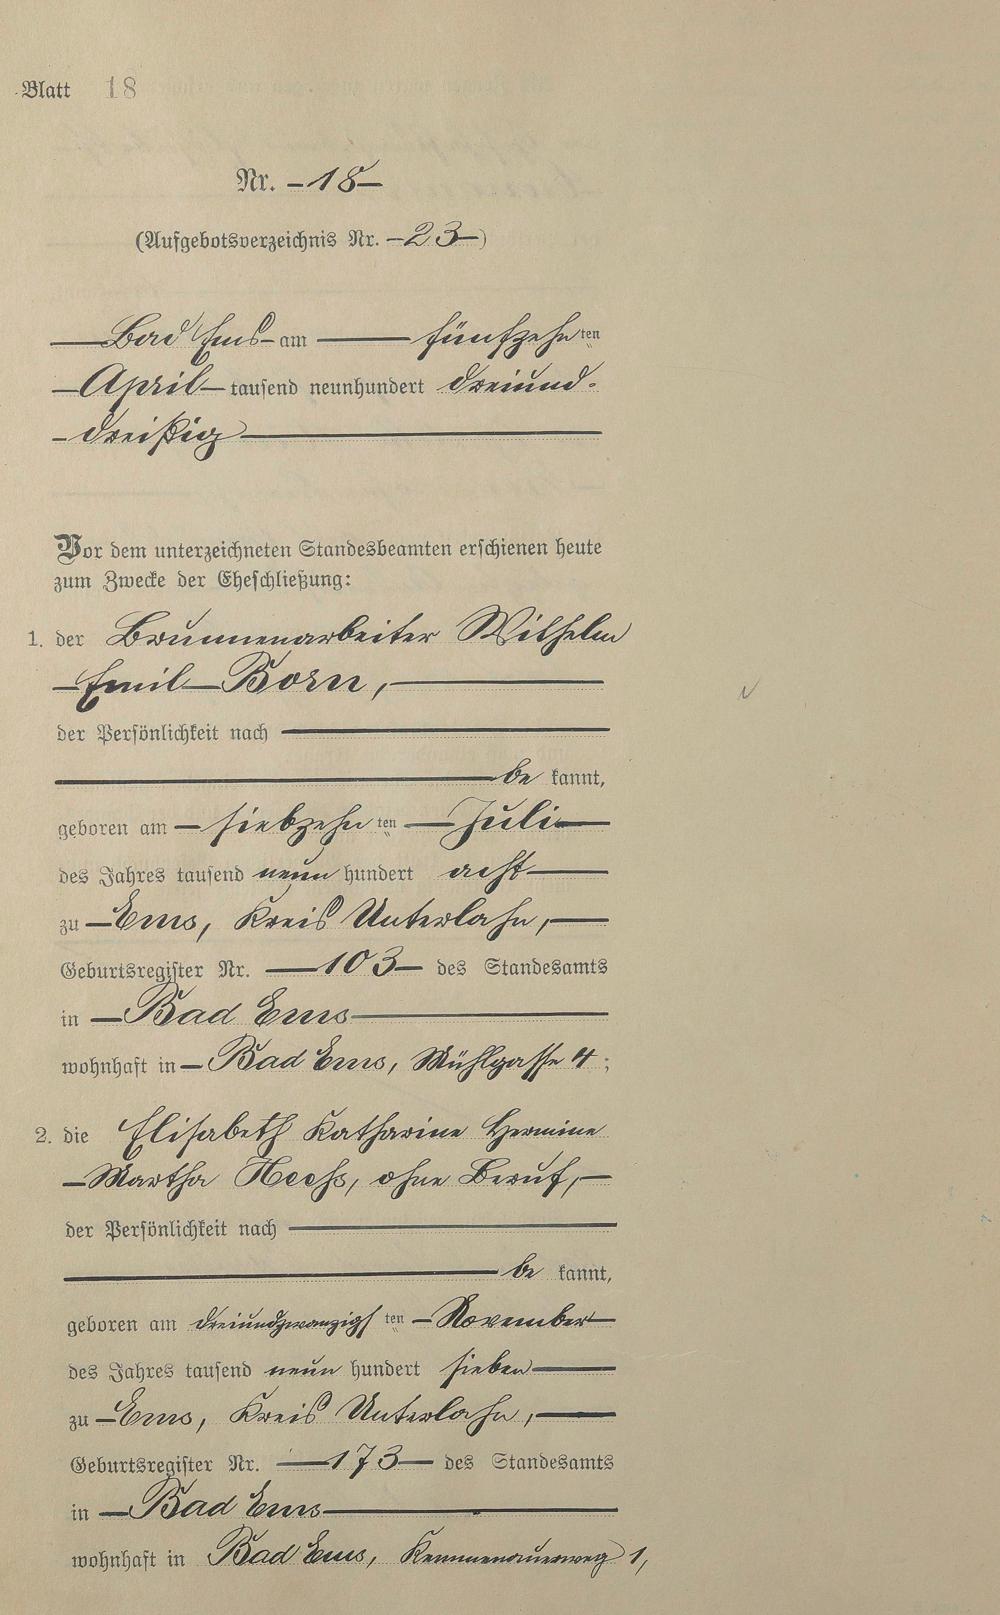 Blatt 18
Nr. -18-
(Aufgebotsverzeichnis Nr. -23-)
Bad Ems am fünfzehnten
April tausend neunhundert dreiund-
dreißig
Vor dem unterzeichneten Standesbeamten erschienen heute
zum Zwecke der Eheschließung:
1. der Brunnenarbeiter Wilhelm
Emil Born,
der Persönlichkeit nach
be kannt,
geboren am siebzehnten Juli
des Jahres tausend neun hundert acht
zu Ems, Kreis Unterlahn,
Geburtsregister Nr. 103 des Standesamts
in Bad Ems
wohnhaft in Bad Ems, Mühlgasse 4;
2. die Elisabeth Katharine Hermine
Martha Heehs, ohne Beruf,
der Persönlichkeit nach
be kannt,
geboren am dreiundzwanzigsten November
des Jahres tausend neun hundert sieben
zu Ems, Kreis Unterlahn,
Geburtsregister Nr. 173 des Standesamts
in Bad Ems
wohnhaft in Bad Ems, Kemmenauerweg 1,